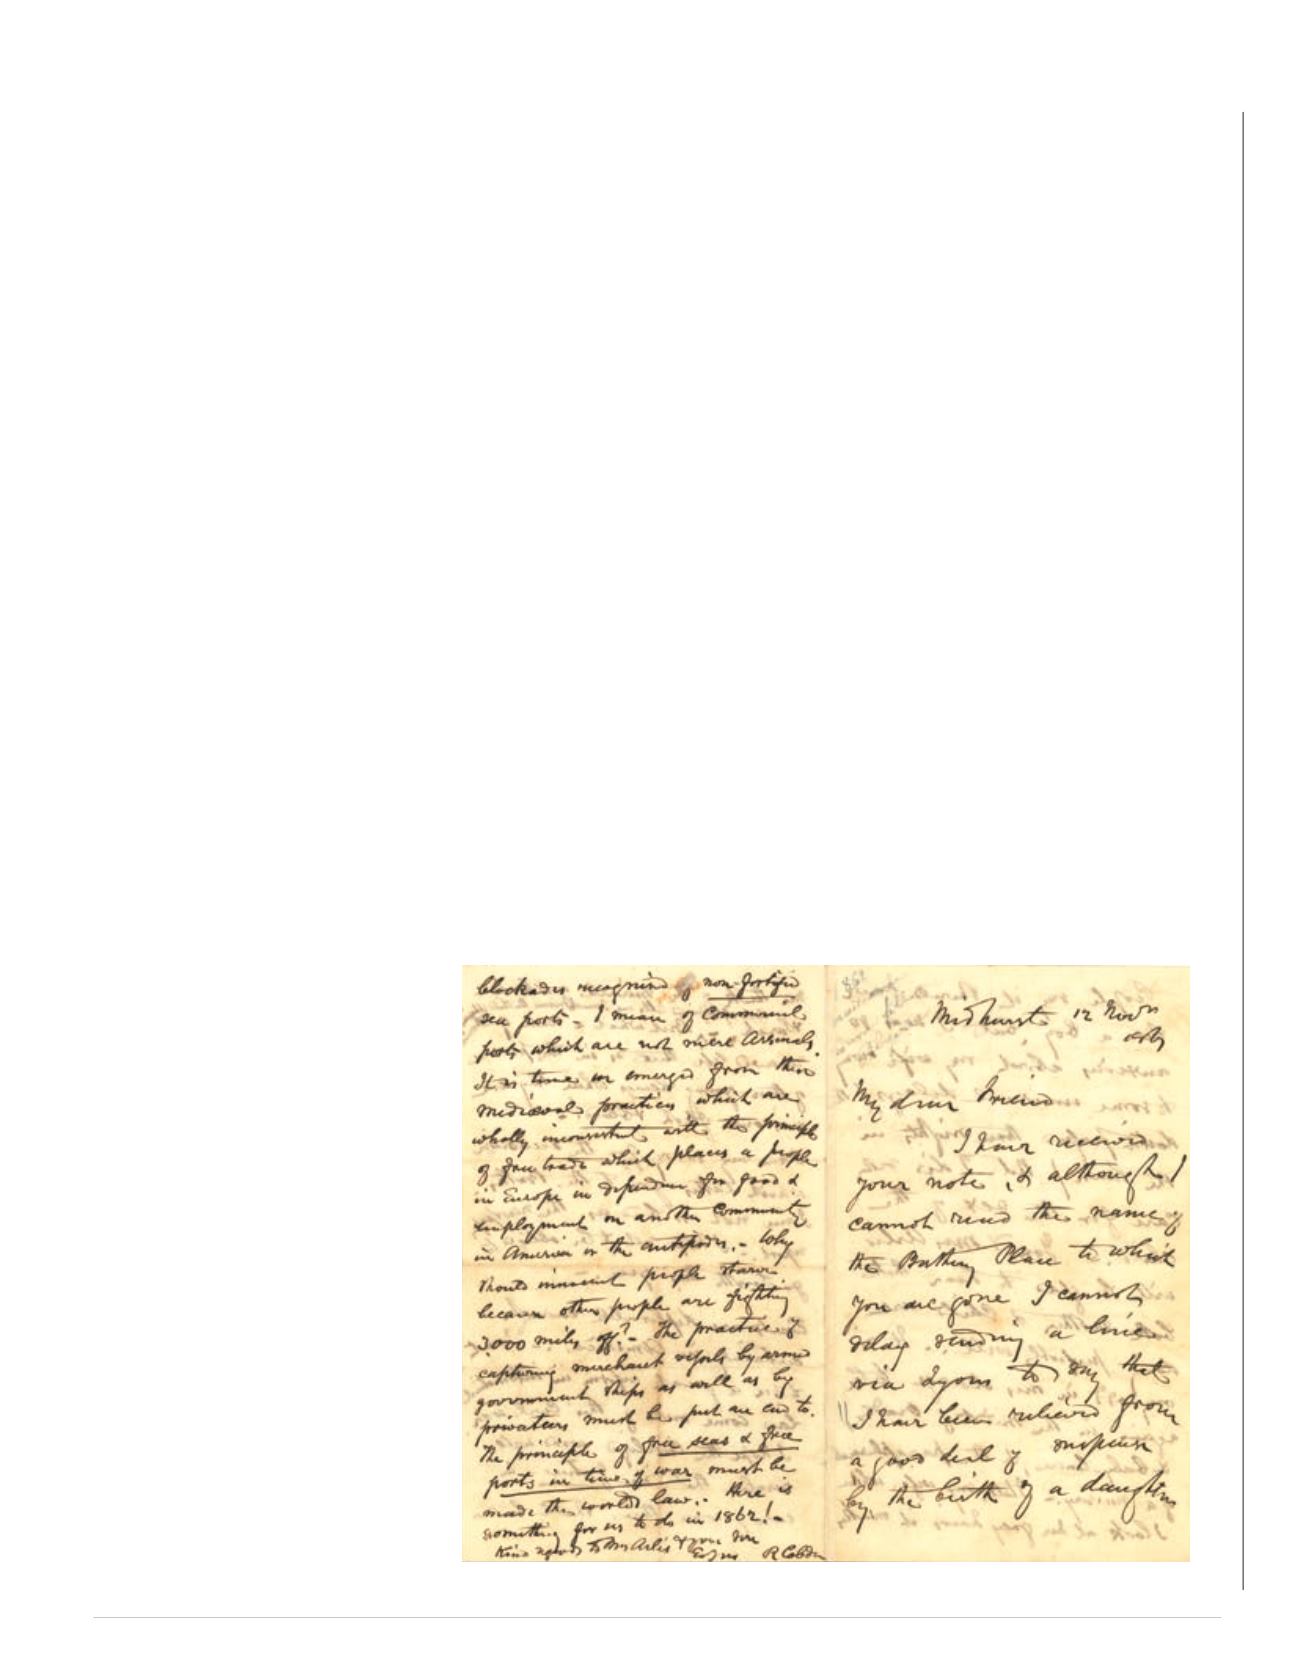 blockades recognised of non-fortified
sea ports - I mean of Commercial
ports which are not mere Arsenals.
It is time we emerged from these
mediæval practices which are
wholly inconsistent with the principle
of free trade which places a people
in Europe in dependence for food &
employment on another community
in America or the antipodes. - Why
should innocent people starve
because other people are fighting
3,000 miles off? - The practice of
capturing merchant vessels by armed
government ships as well as by
privateers must be put an end to.
The principle of free seas & free
ports in time of war must be
made the world's law. - Here is
something for us to do in 1862! -
Kind regards to Mrs Arlès &
R Cobden
Midhurst 12 Novr
My dear Friend
I have received
your note, & although I
cannot read the name of
the Bathing Place to which
you are gone I cannot
delay sending a line
via Lyons to say that
I have been relieved from
a good deal of suspense
by the birth of a daughter